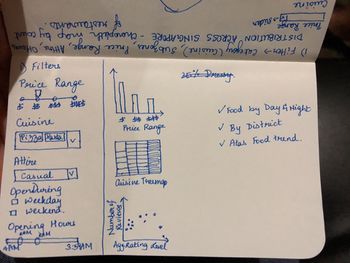 1) Filter → Category (Cuisine), Subzone, Price Range, Attire, Others
DISTRIBUTION ACROSS SINGAPORE - Choropleth map by count
of restaurants
Price Range
Cuisine
1) Filters
Price Range
$ $$ $$$ $$$$
Cuisine
Pizza Pasta
Attire
Casual
Opendaring
weekday
weekend.
Opening Hours
4PM 3:59AM
$ $$ $$$
Price Range
Cuisine Treemap
Number of
Reviews
Agg Rating Level
✓ Food by Day & Night
✓ By District
✓ Alas Food trend.